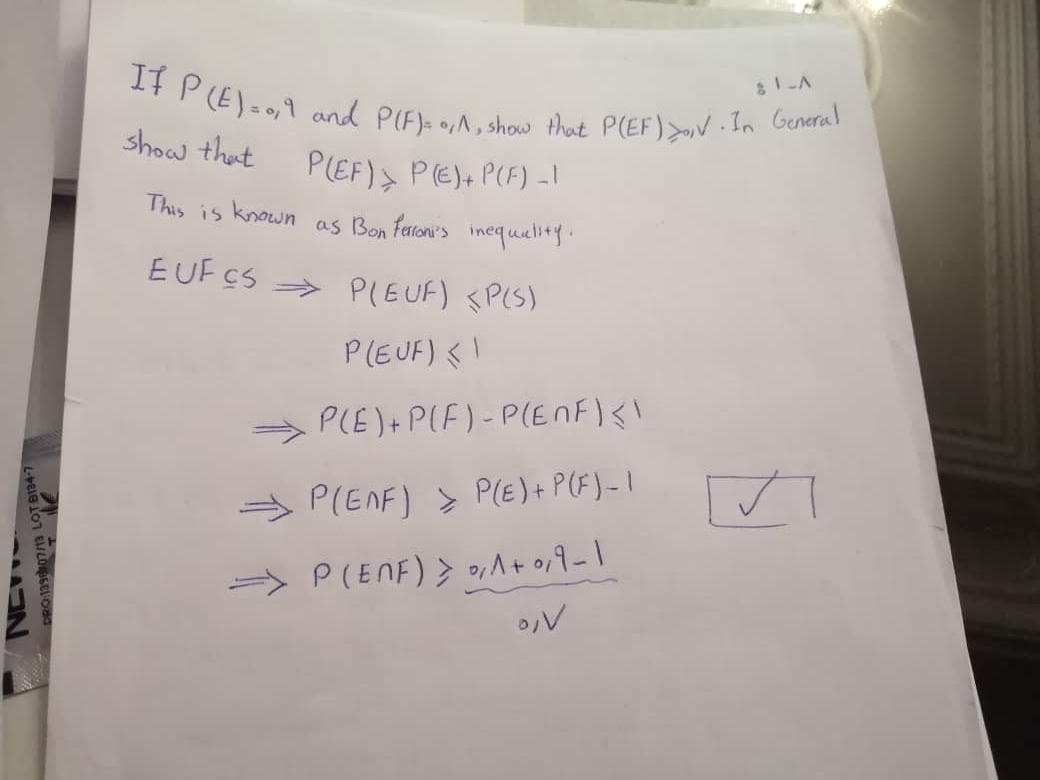 ۱-۸ :
If P(E)=۰,۹ and P(F)=۰,۸, show that P(EF)⩾۰,۷. In General
show that P(EF)⩾ P(E)+ P(F) -1
This is known as Bonferroni's inequality.
E∪F⊆S ⇒ P(E∪F) ⩽P(S)
P(E∪F) ⩽ 1
⇒ P(E)+P(F)-P(E∩F)⩽1
⇒ P(E∩F) ⩾ P(E)+P(F)-1 ✓
⇒ P(E∩F)⩾ ۰,۸+۰,۹-1
۰,۷
LOT B134-7